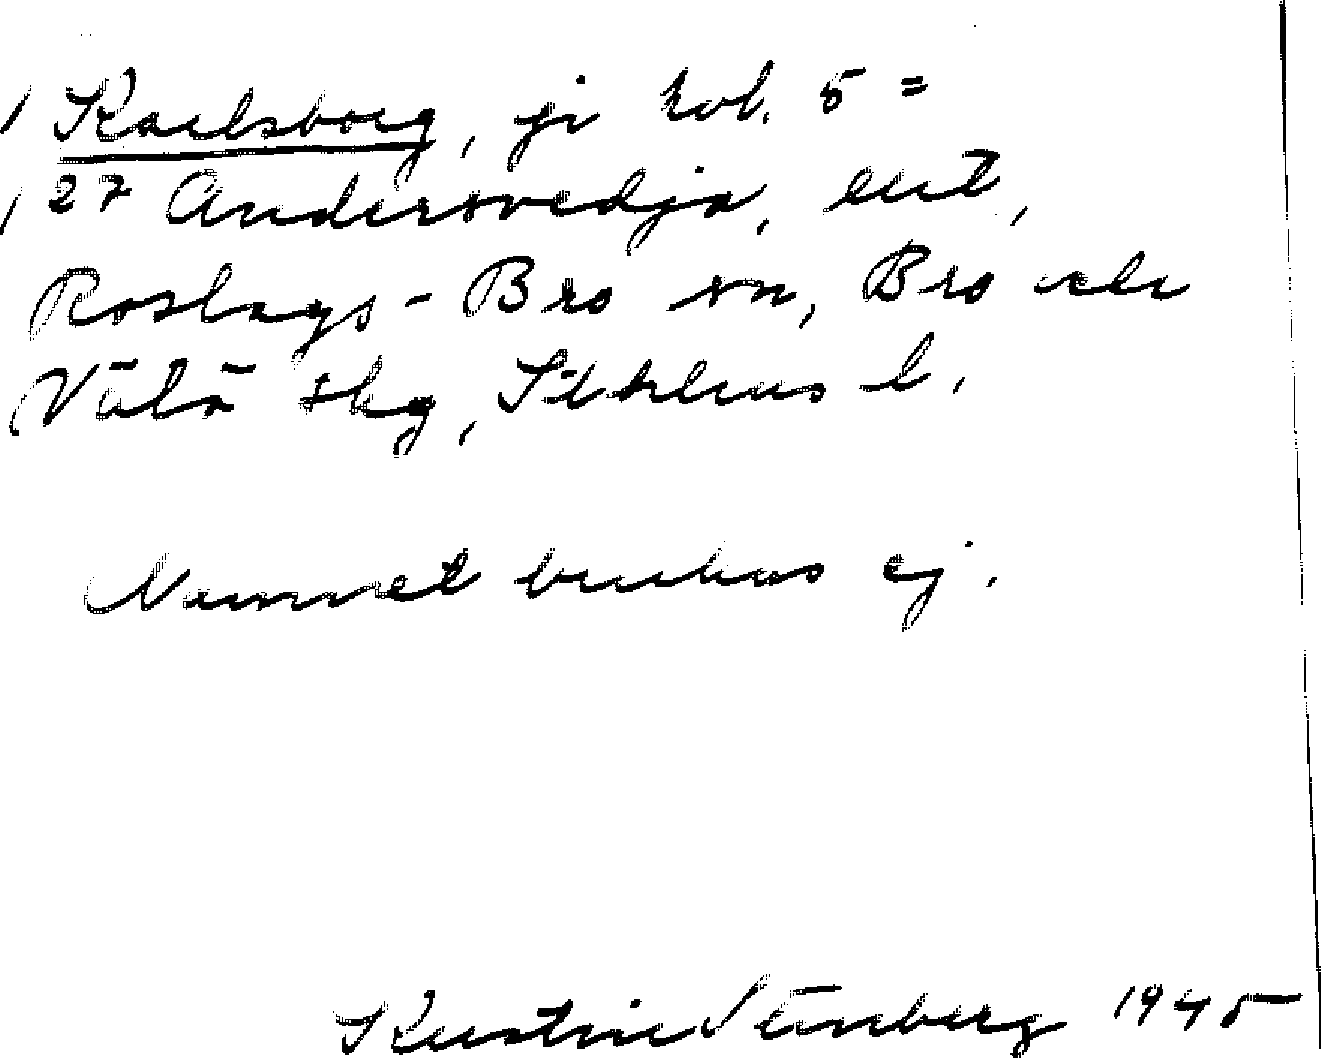 Karlsborg, jr kol. 5 =
27 Andersvedja, ent,
Roslags-Bro sn, Bro och
Vätö skg, Sthlms l.
Namnet brukas ej.
Kerstin Stenberg 1945